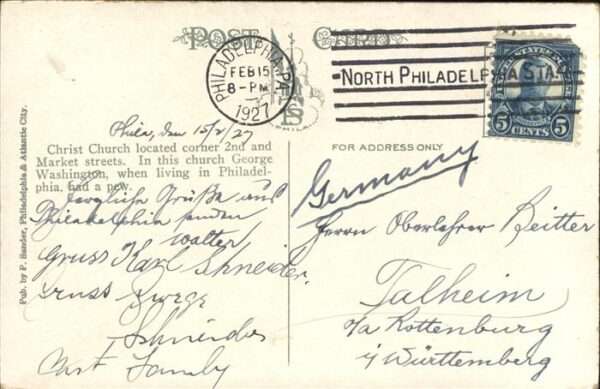 POST CARD
PHILADELPHIA, PA.
FEB 15
8-PM
1927
NORTH PHILADELPHIA STA.
UNITED STATES
5 CENTS 5
Phila, den 15/2/27
Christ Church located corner 2nd and
Market streets. In this church George
Washington, when living in Philadel-
phia, had a pew.
Herzliche Grüße aus
Philadelphia senden
Walter
Gruss Karl Schneider.
Gruss George
Schneider
Pub. by P. Sander, Philadelphia & Atlantic City.
FOR ADDRESS ONLY
Germany
Herrn Oberlehrer Reitter
Talheim
o/a Rottenburg
i/ Württemberg